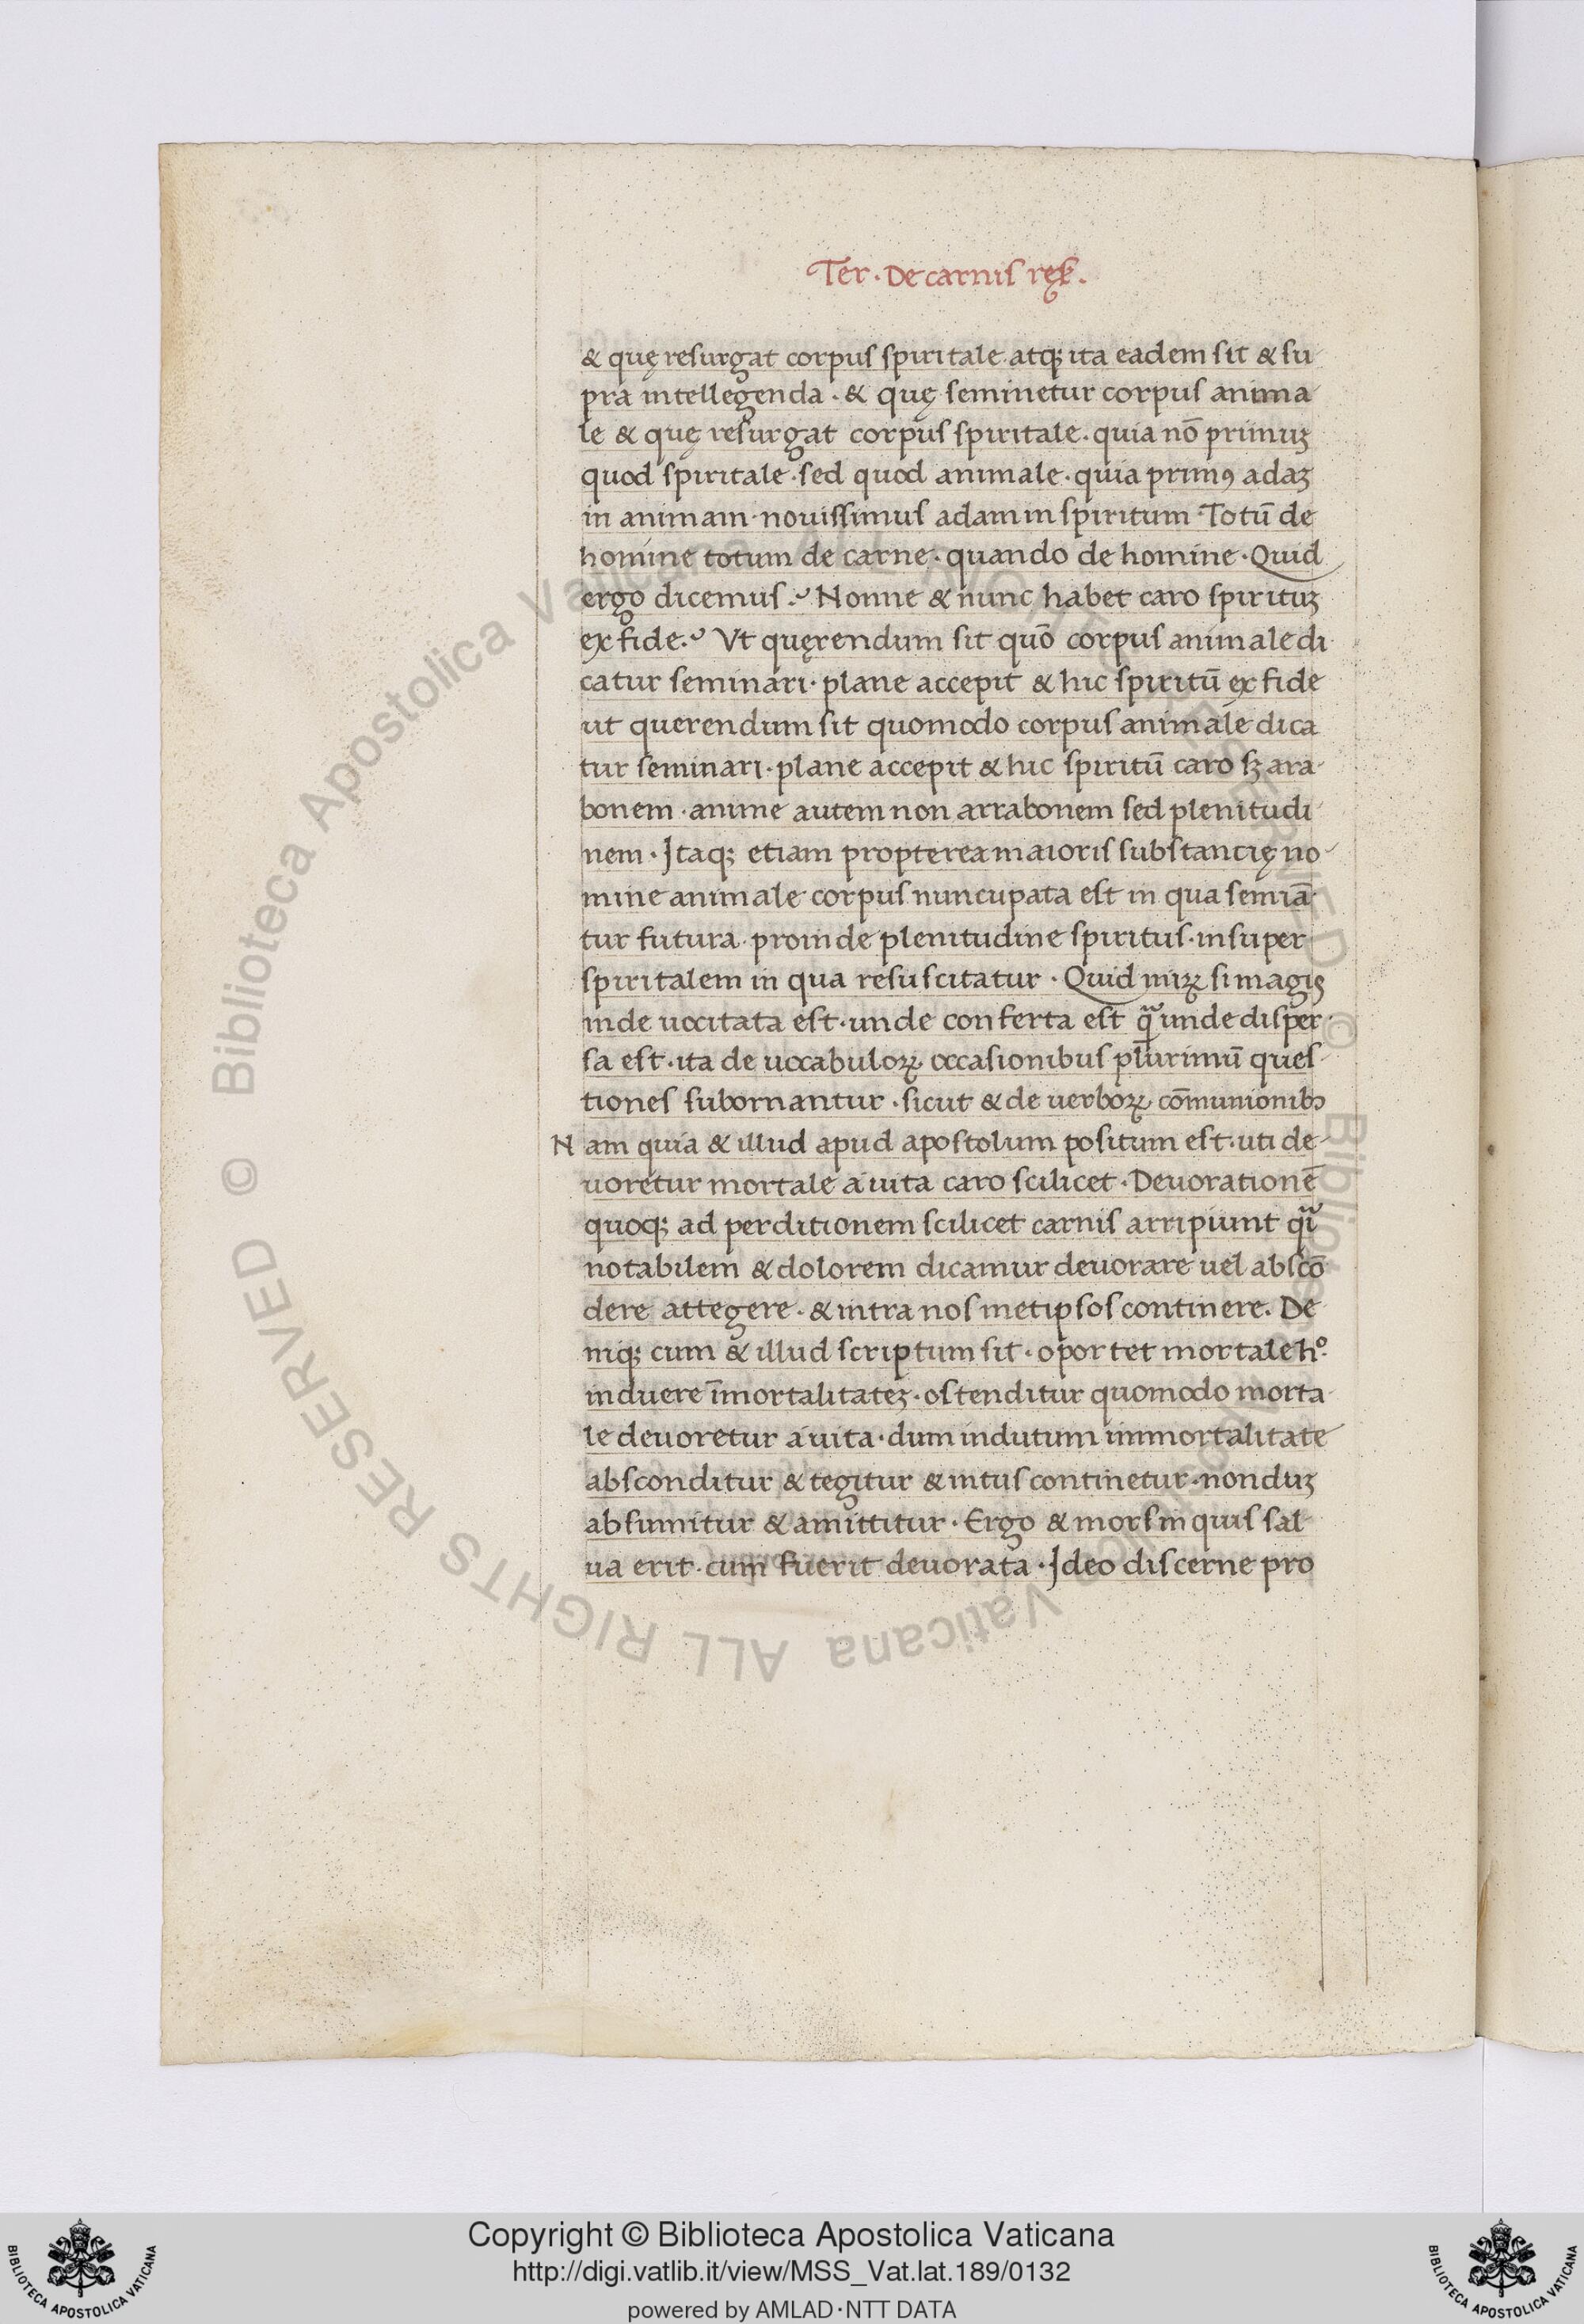 Ter · De carnis ręs̄.
& quę resurgat corpus spiritale · atq; ita eadem sit & su
pra intellegenda · & quę seminetur corpus anima
le & quę resurgat corpus spiritale · quia nō primuꝫ
quod spiritale · sed quod animale · quia primꝰ adaꝫ
in animam · nouissimus adam in spiritum · Totū de
homine totum de carne · quando de homine · Quid
ergo dicemus ? Nonne & nunc habet caro spirituꝫ
ex fide ? Vt quęrendum sit quō corpus animale di
catur seminari · plane accepit & hic spiritū ex fide
ut querendum sit quomodo corpus animale dica
tur seminari · plane accepit & hic spiritū caro sꝫ ara
bonem · anime autem non arrabonem sed plenitudi
nem · Itaq; etiam propterea maioris substancię no
mine animale corpus nuncupata est in qua semiā
tur futura · proinde plenitudine spiritus · insuper
spiritalem in qua resuscitatur · Quid miꝝ si magis
inde uocitata est · unde conferta est q̄ unde disper
sa est · ita de uocabuloꝝ occasionibus plurimū ques
tiones subornantur · sicut & de uerboꝝ cōmunionibꝫ
Nam quia & illud apud apostolum positum est · uti de
uoretur mortale a uita caro scilicet · Deuorationē
quoq; ad perditionem scilicet carnis arripiunt q̄i
notabilem & dolorem dicamur deuorare uel abscō
dere attegere · & intra nos metipsos continere. De
niq; cum & illud scriptum sit · oportet mortale hº.
induere īmortalitateꝫ · ostenditur quomodo morta
le deuoretur a uita · dum indutum immortalitate
absconditur & tegitur & intus continetur · nonduꝫ
absumitur & amittitur · Ergo & mors inquis sal
ua erit · cum fuerit deuorata · Ideo discerne pro
© Biblioteca Apostolica Vaticana ALL RIGHTS RESERVED © Biblioteca Apostolica Vaticana ALL RIGHTS RESERVED
Copyright © Biblioteca Apostolica Vaticana
http://digi.vatlib.it/view/MSS_Vat.lat.189/0132
powered by AMLAD·NTT DATA
BIBLIOTECA APOSTOLICA VATICANA
BIBLIOTECA APOSTOLICA VATICANA